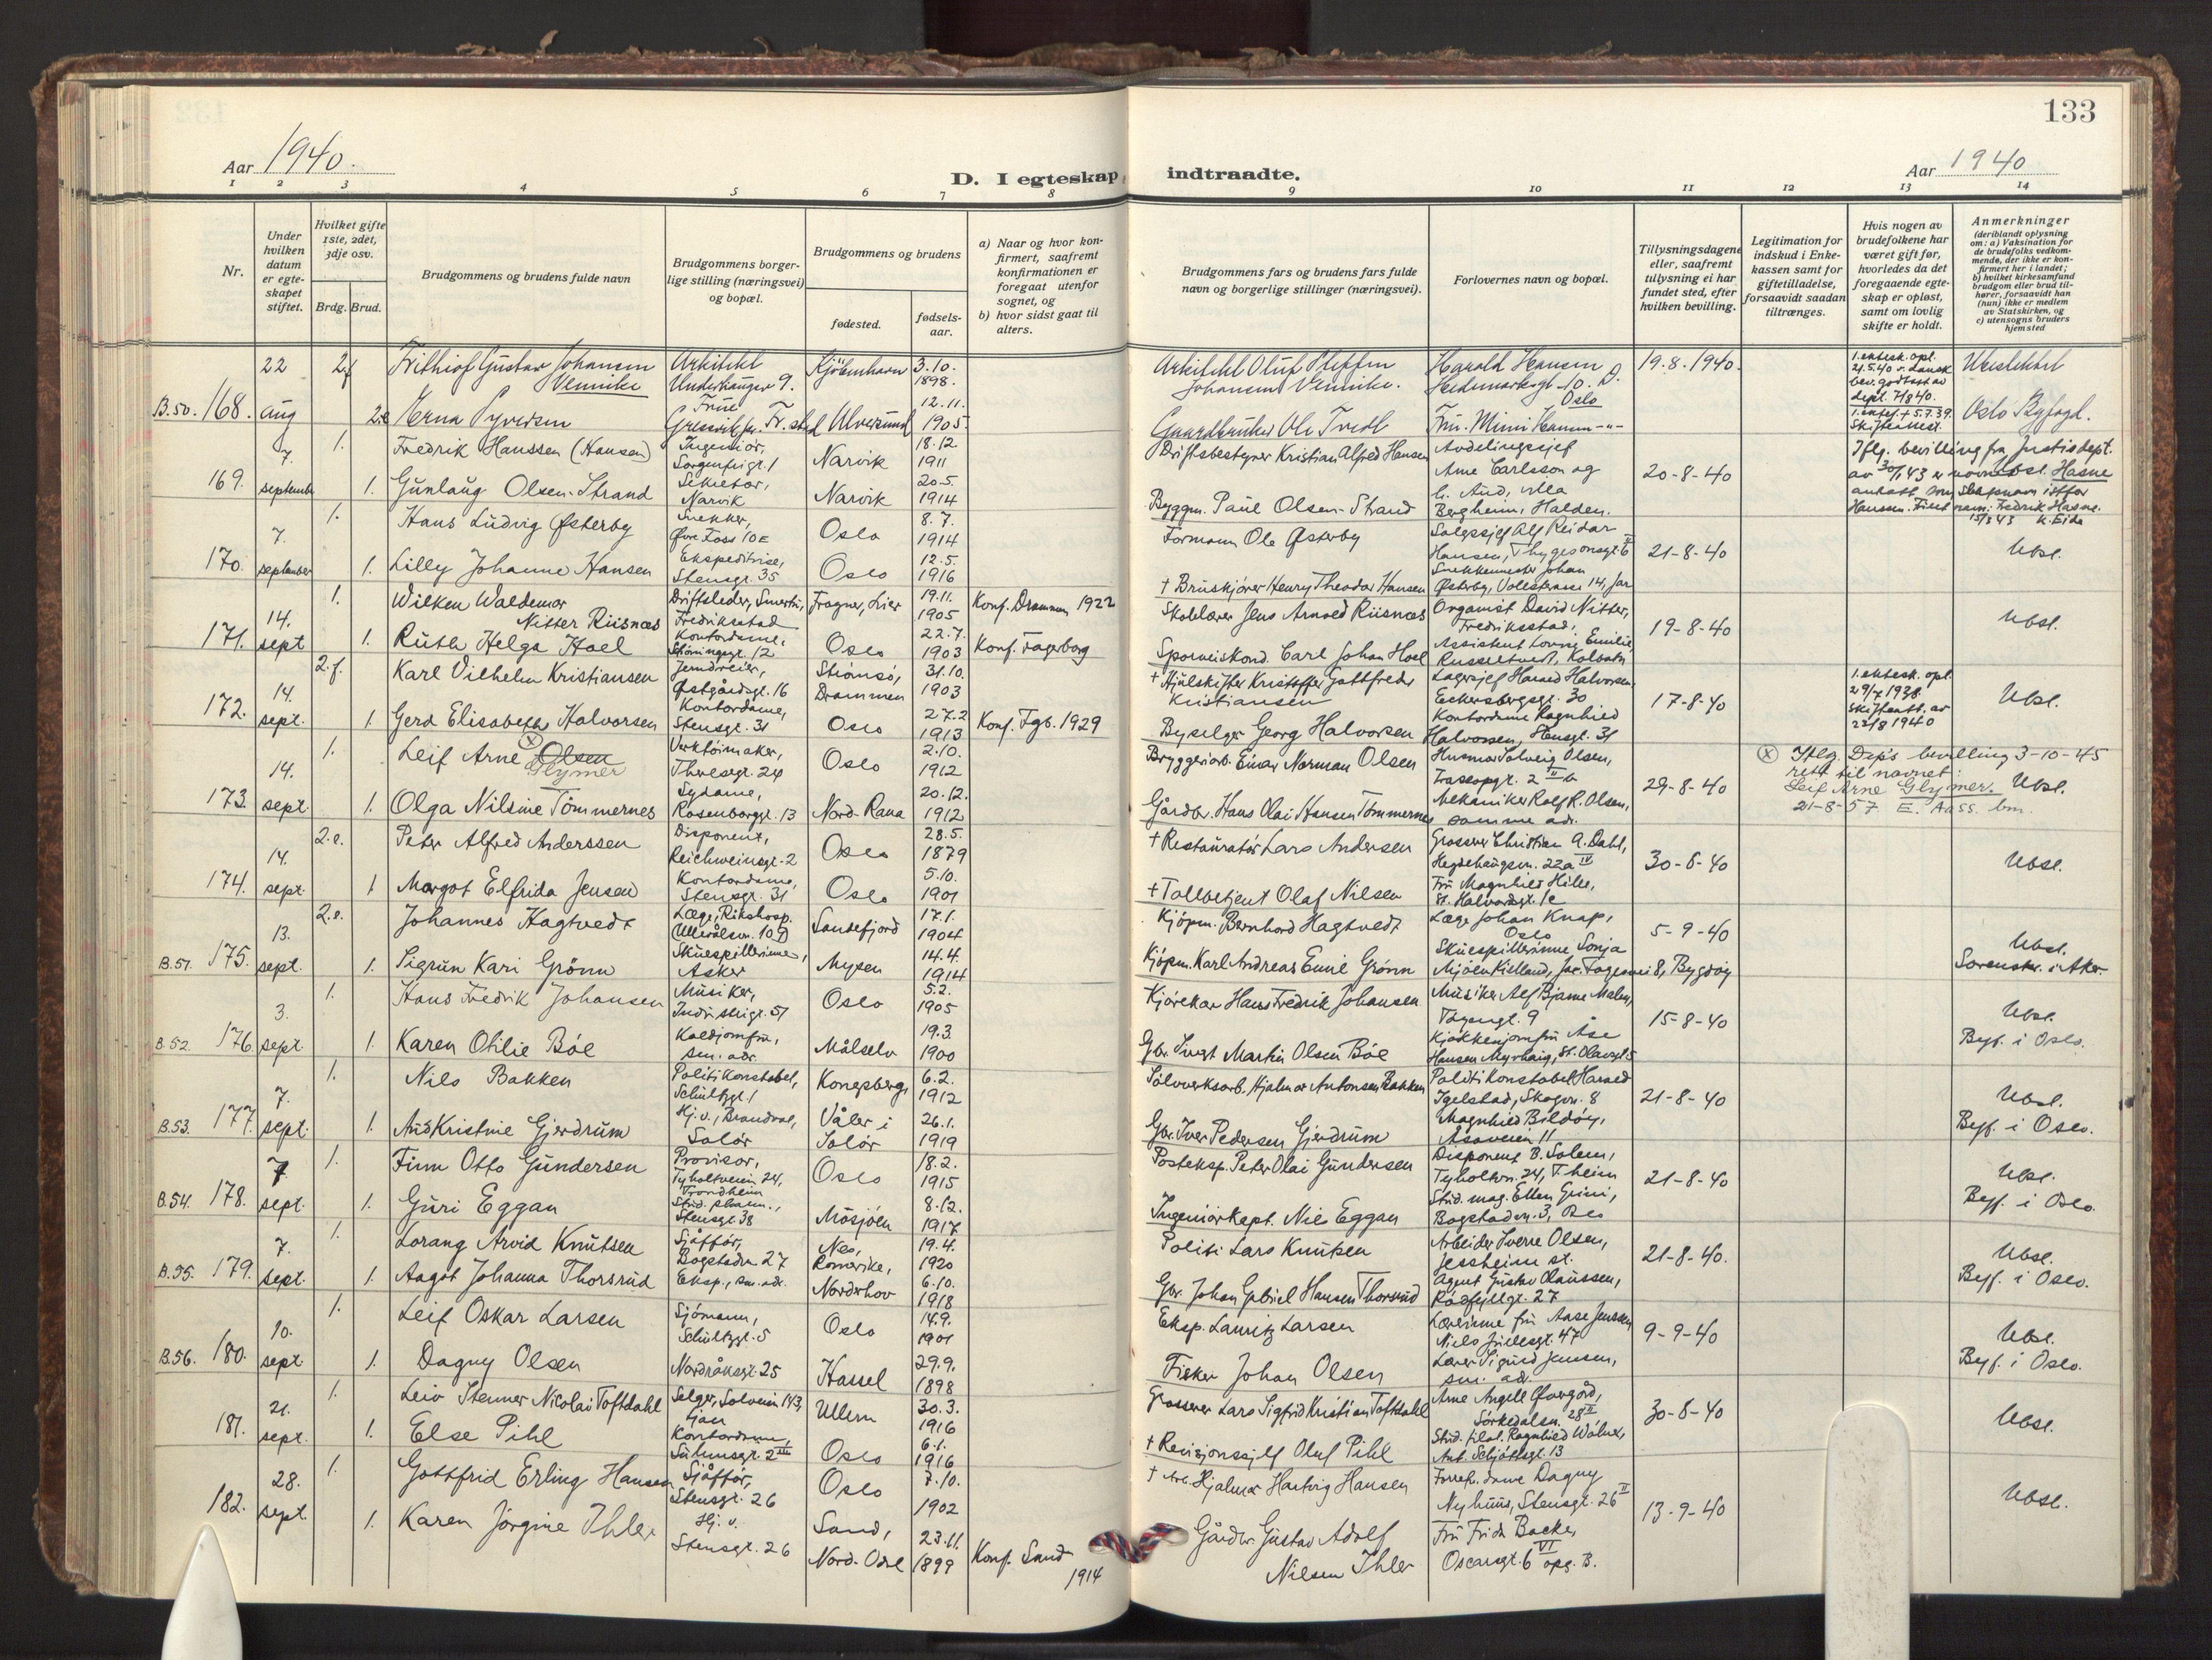 133
Aar 1940.
D. I egteskap indtraadte.
Aar 1940
1 2 3 4 5 6 7 8 9 10 11 12 13 14
Nr.
Under hvilken datum er egteskapet stiftet.
Hvilket gifte 1ste, 2det, 3dje osv.
Brdg. Brud.
Brudgommens og brudens fulde navn
Brudgommens borgerlige stilling (næringsvei) og bopæl.
Brudgommens og brudens
fødested.
fødselsaar.
a) Naar og hvor konfirmert, saafremt konfirmationen er foregaat utenfor sognet, og
b) hvor sidst gaat til alters.
Brudgommens fars og brudens fars fulde navn og borgerlige stillinger (næringsvei).
Forlovernes navn og bopæl.
Tillysningsdagene eller, saafremt tillysning ei har fundet sted, efter hvilken bevilling.
Legitimation for indskud i Enkekassen samt for giftetilladelse, forsaavidt saadan tiltrænges.
Hvis nogen av brudefolkene har været gift før, hvorledes da det foregaaende egteskap er opløst, samt om lovlig skifte er holdt.
Anmerkninger (deriblandt oplysning om: a) Vaksination for de brudefolks vedkommende, der ikke er konfirmert her i landet; b) hvilket kirkesamfund brudgom eller brud tilhører, forsaavidt han (hun) ikke er medlem av Statskirken, og c) utensogns bruders hjemsted
B.50. 168. 22 aug
2f Frithiof Gustav Johansen Vennike Arkitekt Underhaugsv 9. Kjöbenhavn 3.10. 1898.
Arkitekt Oluf Steffen Johansen Vennike. Harald Hansen Hedemarksgt. 10. Oslo 19.8.1940. 1. ektesk. opl. 21.5.40 v. dansk bev. godtatt av dept. 7/8 40.
2e Erna Syversen Frue Ulvesund 12.11. 1905.
Gaardbruker Ole Tvedt Fru. Mimi Hansen -"- Skifteattest. Oslo Byfogd.
169. 7. september
1. Fredrik Hanssen (Hansen) Ingeniör, Sorgenfrigt. 1 Narvik 18.12 1911
Driftsbestyrer Kristian Alfred Hansen Avdelingssjef Arne Carlsson og 20-8-40 Iflg. bevilling fra Justisdept. av 30/1 43 er navnet Hasne
1. Gunlaug Olsen-Strand Sekretær, Narvik Narvik 20.5. 1914
Byggm. Paul Olsen-Strand Bergheim, Halden. Fredrik Hasne. 15/3 43 K. Eide
170. 7. september
1. Hans Ludvig Østerby Snekker, Oslo 8.7. 1914
Formann Ole Østerby Salgssjef Alf Reidar Hansen, Thygesonsgt. 6 21-8-40 Ubsl.
1. Lilly Johanne Hansen Ekspeditrise, Stensgt. 35 Oslo 12.5. 1916
† Bruskjører Henry Theodor Hansen Snekkermester Johan Østerby, Jar
171. 14. sept
1. Wilken Waldemar Nitter Riisnæs Driftsleder, Fredriksstad Fragner, Lier 19.11. 1905 Konf. Drammen 1922
Skolelærer Jens Arnold Riisnæs Organist David Nitter, Fredriksstad, 19-8-40 Ubsl.
1. Ruth Helga Hoel Kontordame, Oslo 22.7. 1903 Konf. Fagerborg
Sporveiskond. Carl Johan Hoel Assistent Emilie Kolbotn
172. 14. sept.
2.f. Karl Vilhelm Kristiansen Jerndreier, Østgårdsgt. 16 Strömsö, Drammen 31.10. 1903
† Hjulskifter Kristoffer Gottfreder Kristiansen Lagersjef Harald Halvorsen, Eckersbergsgt. 30 17-8-40 1. ektesk. opl. 29/7 1938. Skifteatt. av 22/8 1940 Ubsl.
1. Gerd Elisabeth Halvorsen Kontordame, Stensgt. 31 Oslo 27.2 1913 Konf. Fgb. 1929
Byselger Georg Halvorsen Kontordame Ragnhild Halvorsen, Stensgt. 31
173. 14. sept.
1. Leif Arne Olsen (X) Glymer Verktöimaker, Theresesgt. 24 Oslo 2.10. 1912
Bryggeriarb. Einar Norman Olsen Husmor Solveig Olsen, 29-8-40 (X) Iflg. Dep's bevilling 3-10-45 rett til navnet: Leif Arne Glymer. 21-8-57 E. Aass. bm. Ubsl.
1. Olga Nilsine Tömmernes Sydame, Rosenborggt. 13 Nord-Rana 20.12. 1912
Gårdbr. Hans Olai Hansen Tömmernes Mekaniker Rolf R. Olsen, samme adr.
174. 14. sept.
2.e. Peter Alfred Anderssen Disponent, Reichweinsgt. 2 Oslo 28.5. 1879
† Restauratör Lars Andersen Grosserer Christian A. Dahl, Hegdehaugsvn. 22a IV 30-8-40 Ubsl.
1 Margot Elfrida Jensen Kontordame, Stensgt. 31 Oslo 5.10. 1901
† Tollbetjent Olaf Nilsen Fru Magnhild Hille, St. Halvardsgt. 1c
B.51. 175. 13. sept.
2.e. Johannes Hagtvedt Læge, Rikshosp. Ullevålsvn. 10 D Sandefjord 17.1. 1904
Kjöpm. Bernhard Hagtvedt Læge Johan Knap, Oslo 5-9-40 Ubsl.
1. Sigrun Kari Grönn Skuespillerinne, Asker Mysen 14.4. 1914
Kjöpm. Karl Andreas Emil Grönn Skuespillerinne Sonja Mjöen Kielland, 8, Bygdöy Sorenskr. i Aker.
B.52. 176. 3. sept.
1. Hans Fredrik Johansen Musiker, Industrigt. 51 Oslo 5.2. 1905
Kjörekar Hans Fredrik Johansen Musiker Alf Bjarne Malm, Töyengt. 9 15-8-40 Ubsl.
1. Karen Othilie Böe Koldjomfru, sm. adr. Målselv 19.3. 1900
Gbr. Sivert Martin Olsen Böe Kjökkenjomfru Åse Hansen Myrhaug, St. Olavsgt 5 Byf. i Oslo.
B.53. 177. 7. sept.
1. Nils Bakken Politikonstabel, Schultzgt. 1 Kongsberg, 6.2. 1912
Sölvverksarb. Hjalmar Antonsen Bakken Politikonstabel Harald Igelstad, Skogvn. 8 21-8-40 Ubsl.
1. Aud Kristine Gjerdrum Hj.v., Brandval, Solör Våler i Solör 26.1. 1919
Gbr. Iver Pedersen Gjerdrum Magnhild Bildöy, Åsaveien 11 Byf. i Oslo.
B.54. 178. 7 sept.
1. Finn Otto Gundersen Provisor, Tyholtveien 24, Trondheim Oslo 18.2. 1915
Posteksp. Peter Olai Gundersen Disponent B. Solem, Tyholtvn. 24, T.heim 21-8-40 Ubsl.
1. Guri Eggan Stud. pharm., Stensgt. 38 Mosjöen 8.12. 1917
Ingeniörkapt. Nils Eggan Stud. mag. Ellen Grini, Bogstadvn. 3, Oslo Byf. i Oslo.
B.55. 179. 7. sept.
1. Lorang Arvid Knutsen Sjåfför, Bogstadvn. 27 Nes, Romerike, 19.4. 1920
Politi Lars Knutsen Arbeider Sverre Olsen, Jessheim st. 21-8-40. Ubsl.
1. Aagot Johanna Thorsrud Eksp., sm. adr. Norderhov 6.10. 1918
Gbr. Johan Gabriel Hansen Thorsrud Agent Gustav Claussen, Rådfyllgt. 27 Byf. i Oslo.
B.56. 180. 10. sept
1. Leif Oskar Larsen Sjömann, Schultzgt. 5 Oslo 14.9. 1901
Eksp. Lauritz Larsen Lærerinne fru Aase Jenssen Niels Juelsgt. 47 9-9-40 Ubsl.
1. Dagny Olsen Nordråksgt. 25 Hassel 29.9. 1898
Fisker Johan Olsen Lærer Sigurd Jensen, sm. adr. Byf. i Oslo.
181. 21. sept.
1. Leiv Stenner Nicolai Toftdahl Selger, Solveien 143, Ljan Ullern 30.3. 1916
Grosserer Lars Sigfrid Kristian Toftdahl Arne Angell Sörkedalsvn. 28 II 30-8-40 Ubsl.
1. Else Pihl Kontordame, Oslo 6.1. 1916
† Revisjonssjef Oluf Pihl Stud. filol. Ragnhild Ant. Schjöttsgt. 13
182. 28. sept.
1. Gottfrid Erling Hansen Sjåfför, Stensgt. 26 Oslo 7.10. 1902
† Arb. Hjalmar Hartvig Hansen Forretn. dame Dagny Nyhuus, Stensgt. 26 II 13-9-40 Ubsl.
1. Karen Jörgine Ihler Hj. v. Stensgt. 26 Sand, Nord-Odal 23.11. 1899 Konf. Sand 1914
Gårdbr. Gustav Adolf Nilsen Ihler Fru Frida Backe, Oscarsgt. 6 VI opg. B.